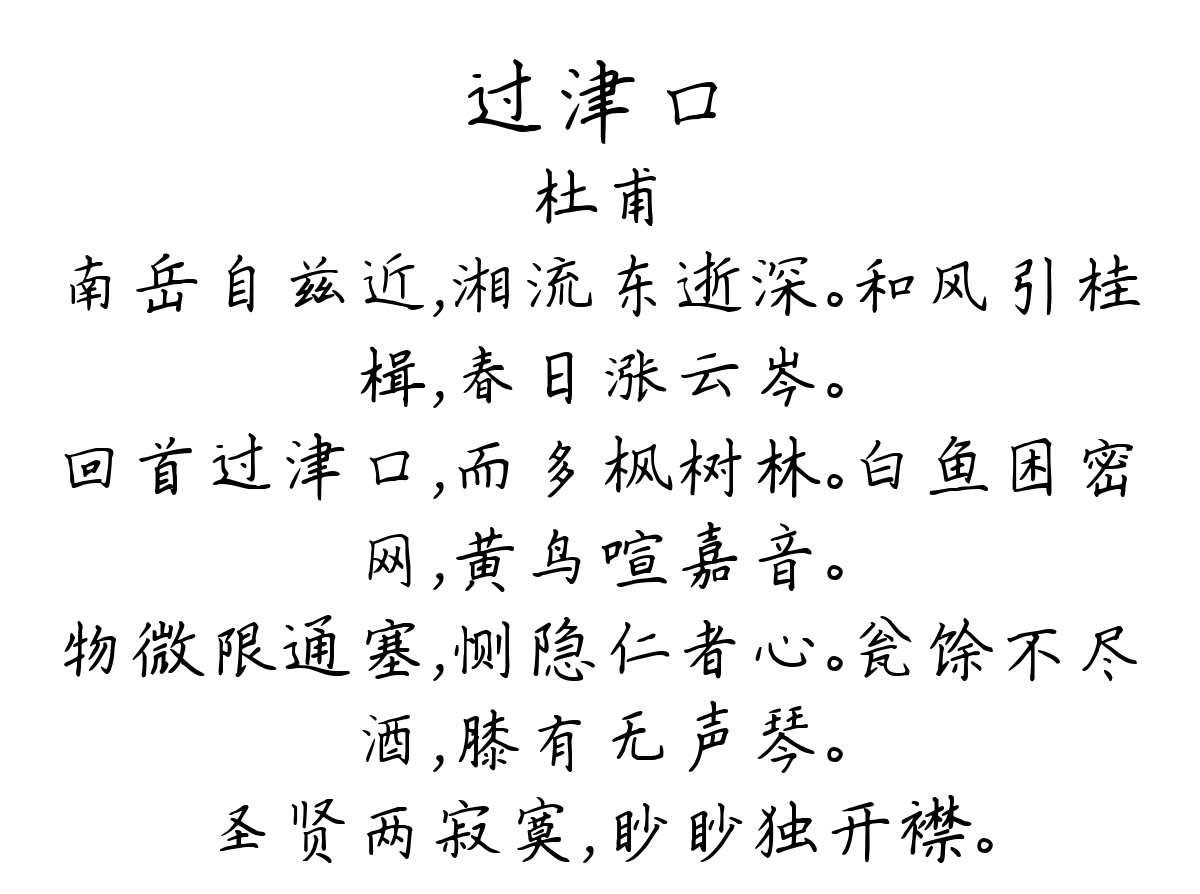 过津口
杜甫
南岳自兹近,湘流东逝深。和风引桂
楫,春日涨云岑。
回首过津口,而多枫树林。白鱼困密
网,黄鸟喧嘉音。
物微限通塞,恻隐仁者心。瓮馀不尽
酒,膝有无声琴。
圣贤两寂寞,眇眇独开襟。